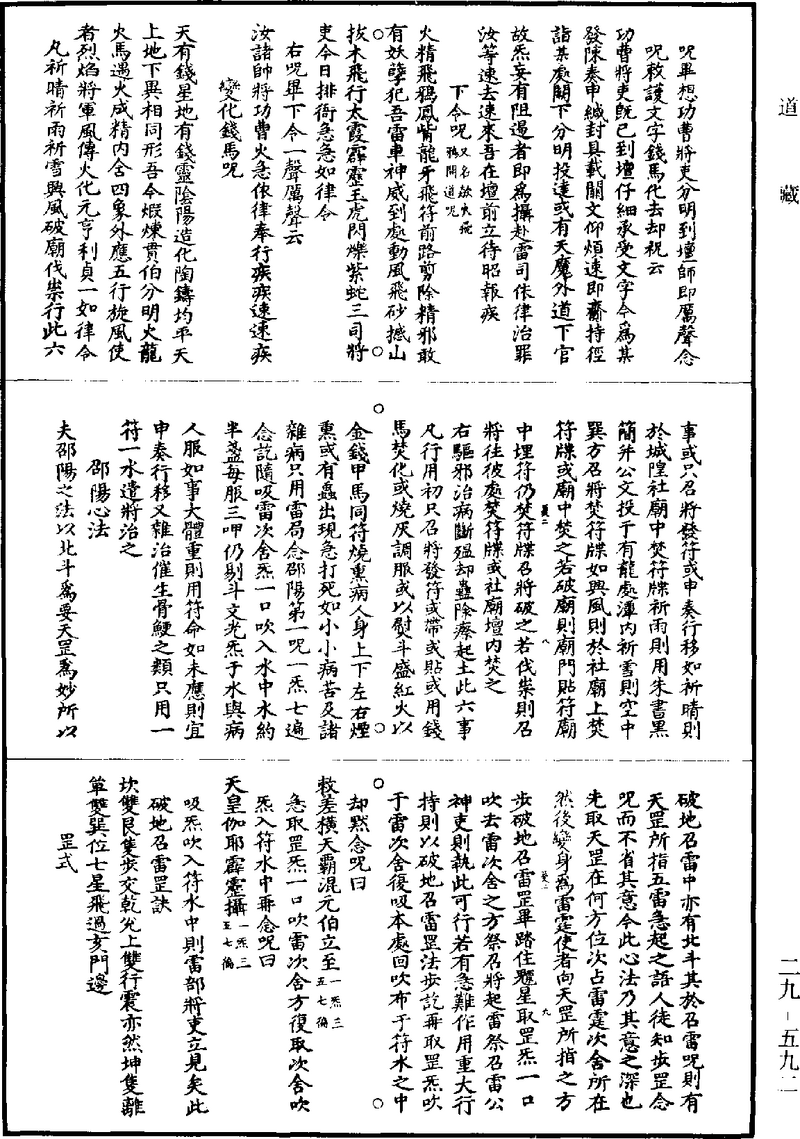 道藏
呪畢想功曹將吏分明到壇師即厲聲念
呪敕護文字錢馬化去却祝云
功曹將吏旣已到壇仔細承受文字今爲某
發陳奏申緘封具載關文仰煩速即齎持徑
詣某處闕下分明投達或有天魔外道下官
故炁妄有阻遏者即爲攝赴雷司依律治罪
汝等速去速來吾在壇前立待昭報疾
下令呪又名欻火飛鴉開道呪
火精飛鴉鳳觜龍牙飛符前路剪除精邪敢
有妖孽犯吾雷車神威到處動風飛砂撼山
拔木飛行太霞霹靂玉虎閃爍紫蛇三司將
吏今日排衙急急如律令
右呪畢下令一聲厲聲云
汝諸帥將功曹火急依律奉行疾疾速速疾
變化錢馬呪
天有錢星地有錢靈陰陽造化陶鑄均平天
上地下異相同形吾今煅煉貫伯分明火龍
火馬遇火成精內含四象外應五行旋風使
者烈焰將軍風傳火化元亨利貞一如律令
凡祈晴祈雨祈雪興風破廟伐祟行此六
事或只召將發符或申奏行移如祈晴則
於城隍社廟中焚符牒祈雨則用朱書黑
簡并公文投于有龍處潭內祈雪則空中
巽方召將焚符牒如興風則於社廟上焚
符牒或廟中焚之若破廟則廟門貼符廟
中埋符仍焚符牒召將破之若伐祟則召
將往彼處焚符牒或社廟壇內焚之
右驅邪治病斷瘟却蠱除瘵起土此六事
凡行用初只召將發符或帶或貼或用錢
馬焚化或燒灰調服或以熨斗盛紅火以
金錢甲馬同符燒熏病人身上下左右煙
熏或有蟲出現急打死如小小病苦及諸
雜病只用雷局念邵陽第一呪一炁七遍
念訖隨吸雷次舍炁一口吹入水中水約
半盞每服三呷仍剔斗文光炁于水與病
人服如事大體重則用符命如未應則宜
申奏行移又雜治催生骨鯁之類只用一
符一水遣將治之
邵陽心法
夫邵陽之法以北斗爲要天罡爲妙所以
破地召雷中亦有北斗其於召雷呪則有
天罡所指五雷急起之語人徒知步罡念
呪而不省其意今此心法乃其意之深也
先取天罡在何方位次占雷霆次舍所在
然後變身爲雷霆使者向天罡所指之方
步破地召雷罡畢踏住魒星取罡炁一口
吹去雷次舍之方祭召將起雷祭召雷公
神吏則執此可行若有急難作用重大行
持則以破地召雷罡法步訖再取罡炁吹
于雷次舍復吸本處回吹布于符水之中
却黙念呪曰
救差橫天霸混元伯立至一炁三五七徧
急取罡炁一口吹雷次舍方復取次舍吹
炁入符水中再念呪曰
天皇伽耶霹靂攝一炁三至七徧
吸炁吹入符水中則雷部將吏立見矣此
破地召雷罡訣
坎雙艮隻步交乾兌上雙行震亦然坤隻離
單雙巽位七星飛過亥門邊
罡式
二九－五九二